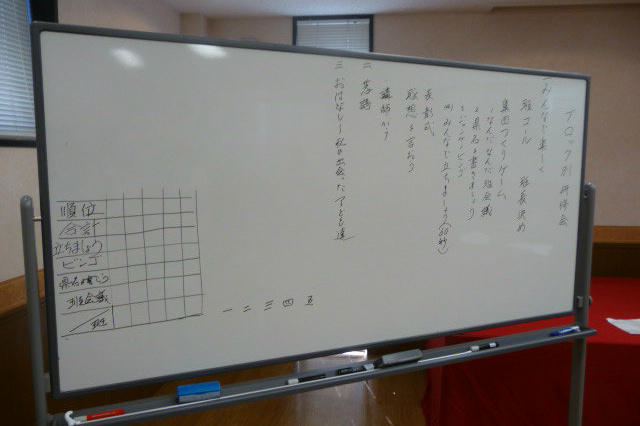 ブロック別 研修会
一 みんなで楽しく
班コール 班長決め
集団づくりゲーム
・なんだなんだ班会議
・県名を書きましょう
・ジャンケンビンゴ
みんなで立ちましょう(60秒)
表彰式
感想を言おう
講師から
二 落語
三 おはなし 私が出会った子ども達
一 二 三 四 五
順位
合計
立ちましょう
ビンゴ
県名を書こう
班会議
班